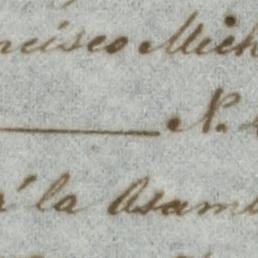 ncisco Mich
N.
á la Asamb